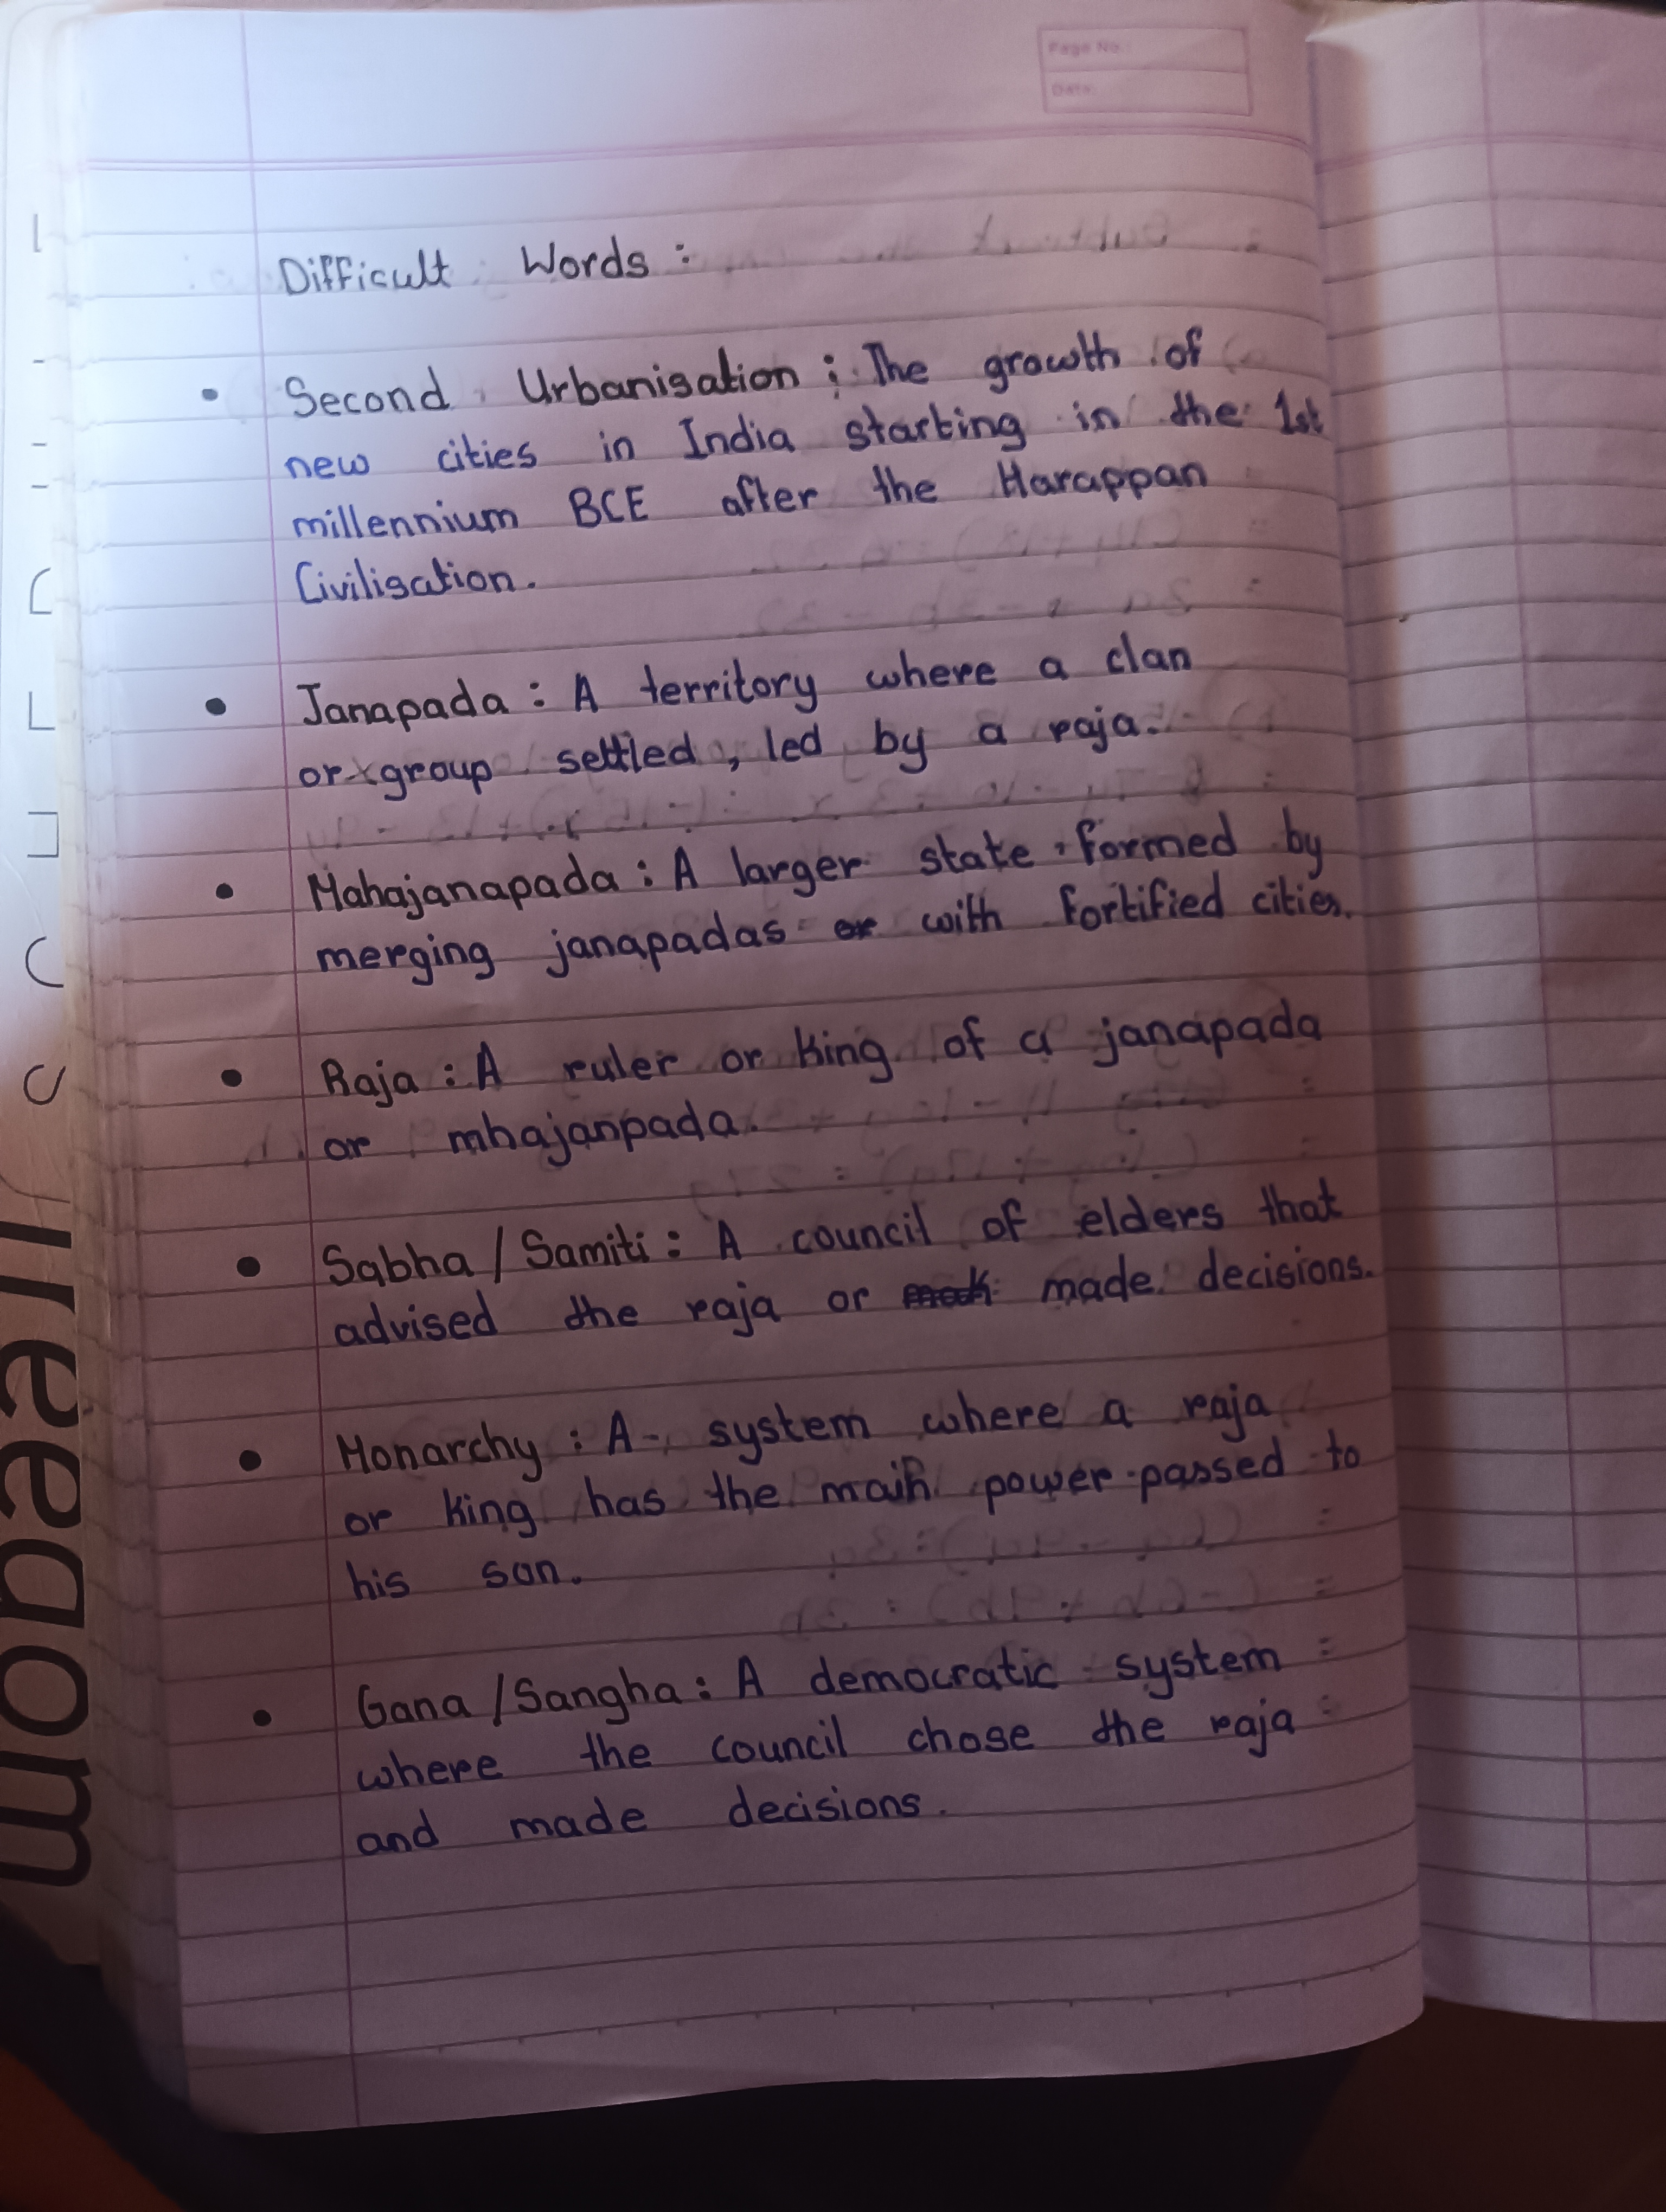 Page No.:
Date:
Difficult Words :
• Second Urbanisation : The growth of
new cities in India starting in the 1st
millennium BCE after the Harappan
Civilisation.
• Janapada : A territory where a clan
or group settled, led by a raja.
• Mahajanapada : A larger state formed by
merging janapadas or with fortified cities.
• Raja : A ruler or king of a janapada
or mhajanpada.
• Sabha / Samiti : A council of elders that
advised the raja or made decisions.
• Monarchy : A system where a raja
or king has the main power passed to
his son.
• Gana / Sangha : A democratic system
where the council chose the raja
and made decisions.